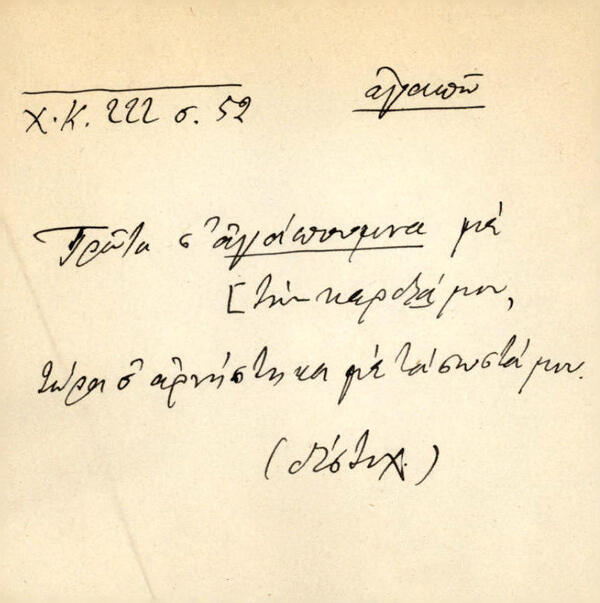 Χ.Κ. 222 σ. 52
ἀγαπῶ
Πρῶτα σ' ἀγάπουμνα μὲ
[τὴν καρδιά μου,
τώρα σ' ἀρνήστηκα μὲ τὰ σωστά μου.
(δίστιχ.)